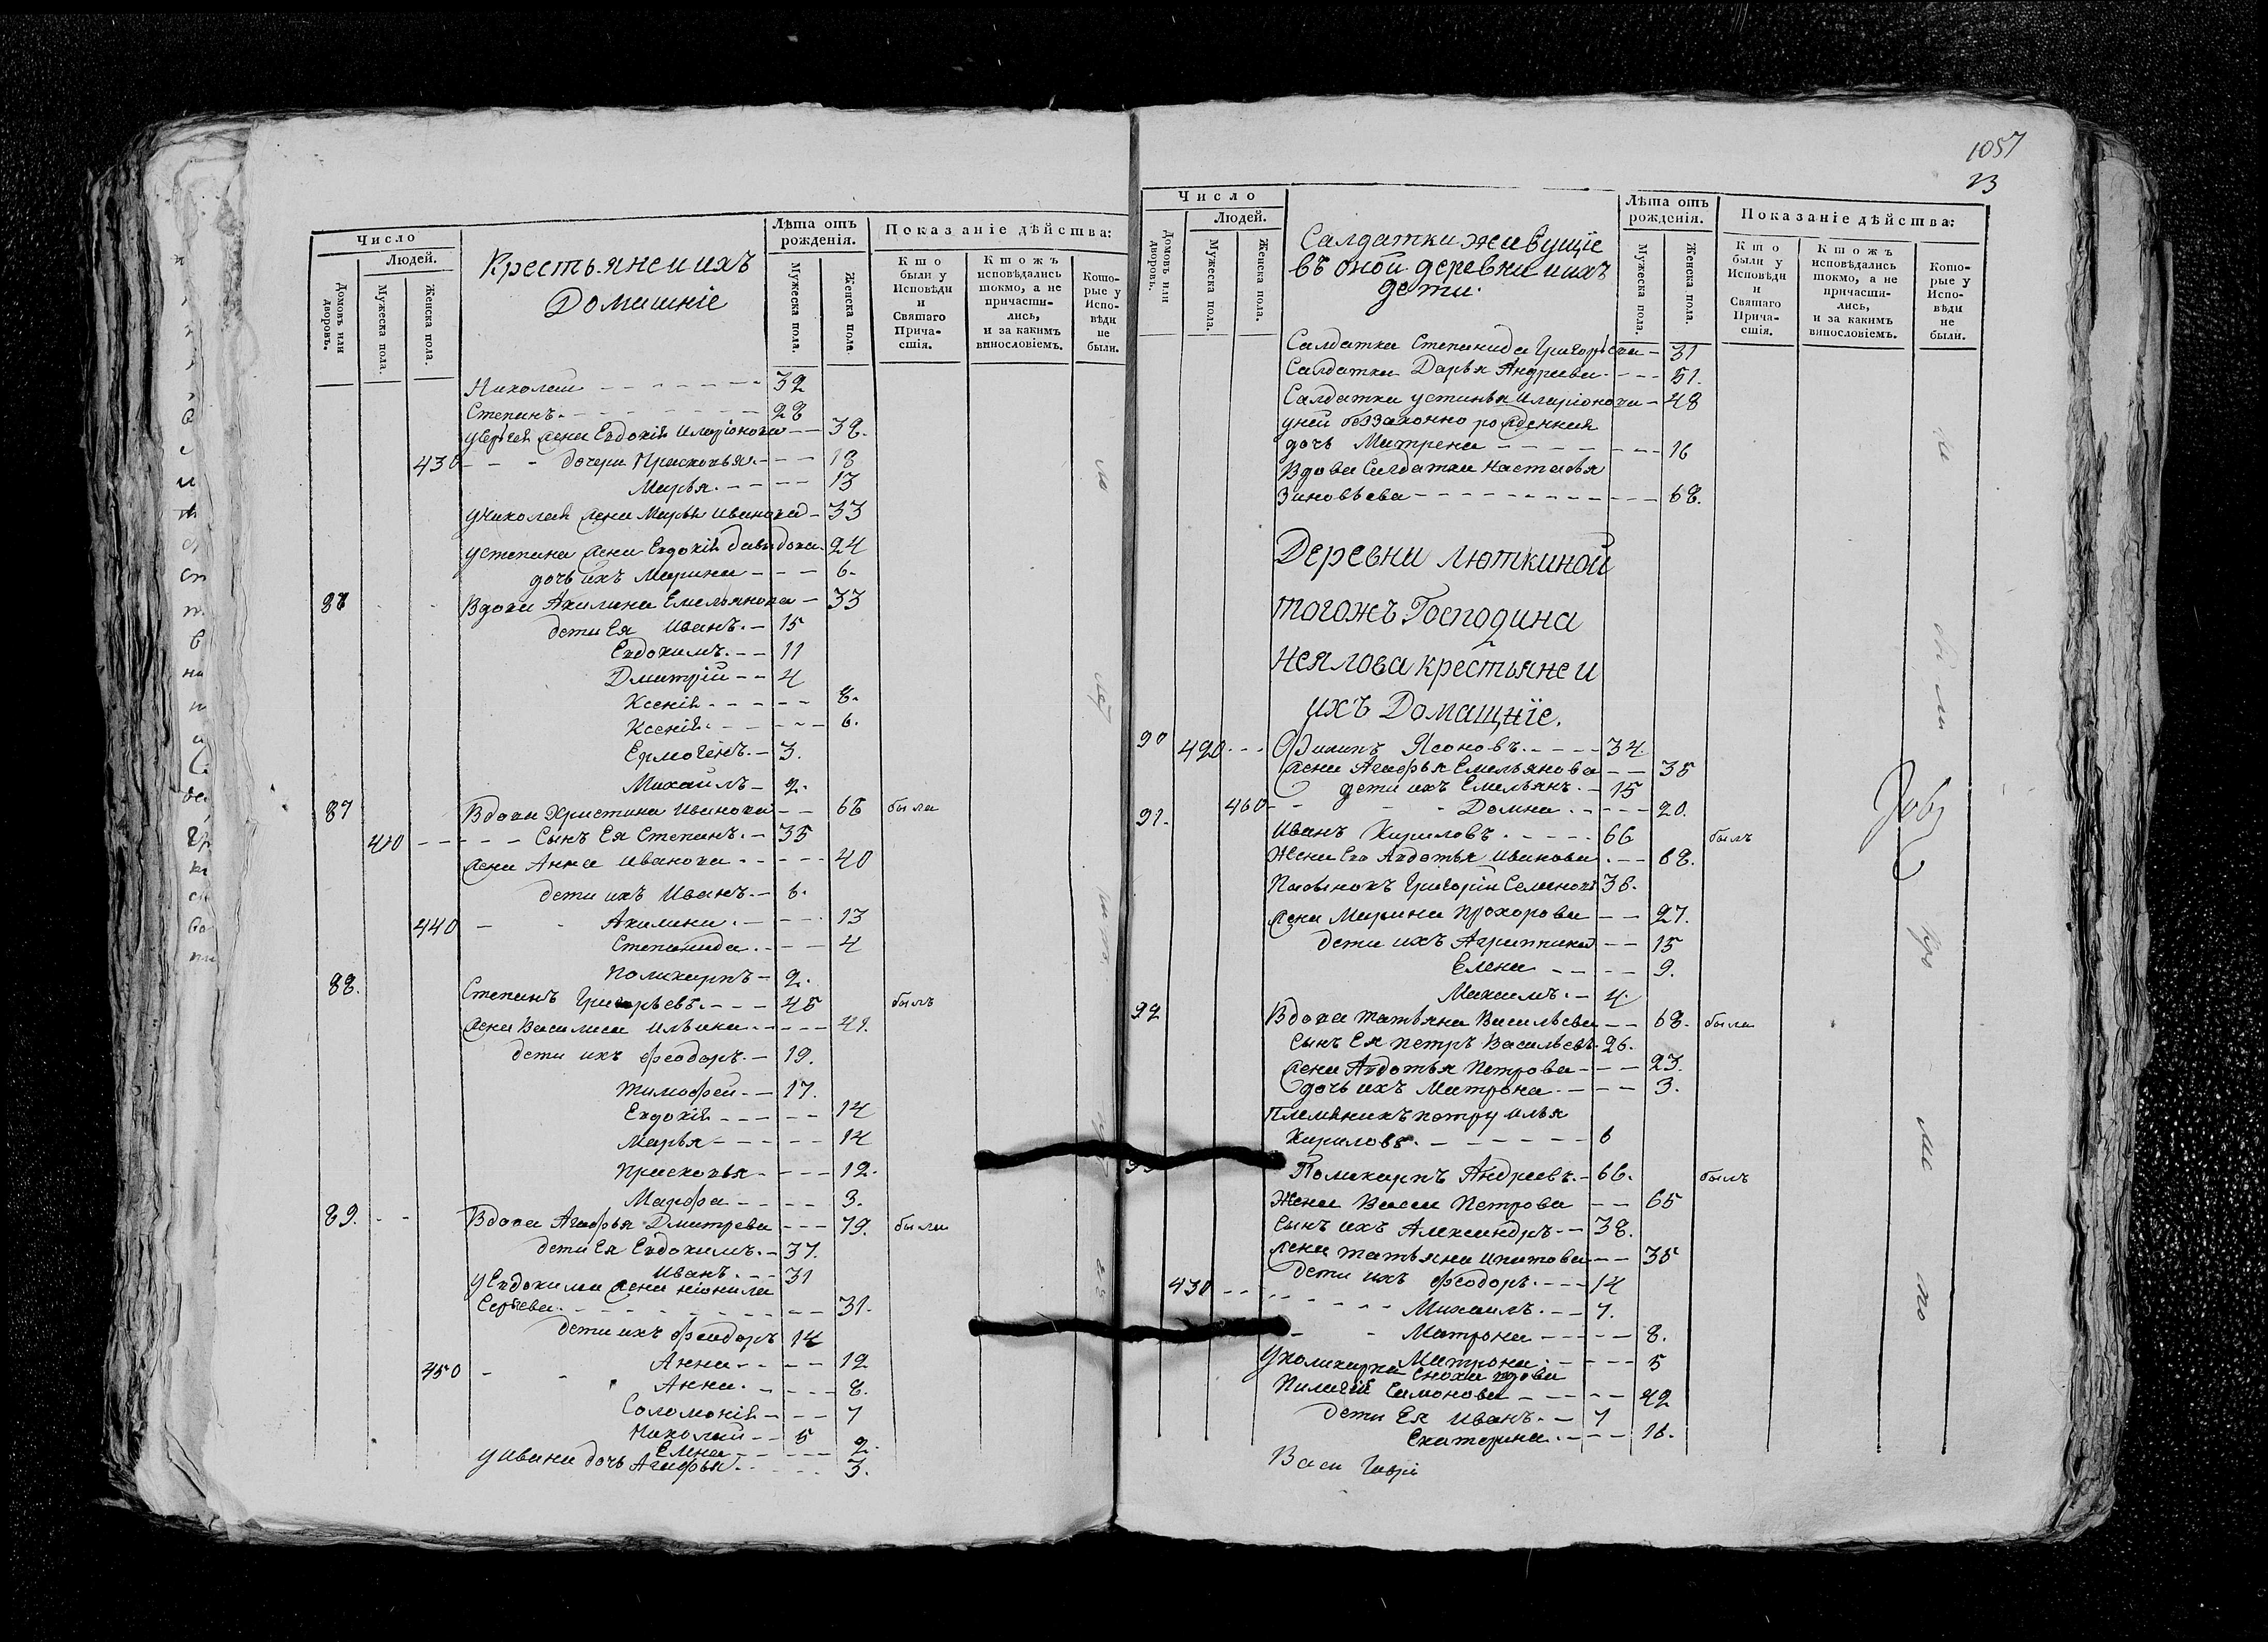 Число
Людей.
Домовъ или дворовъ.
Мужеска пола.
Женска пола.
Крестьяне и ихъ
Домашніе
Лѣта отъ
рожденія.
Мужеска пола.
Женска пола.
Показаніе дѣйства:
Кто
были у
Исповѣди
и
Святаго
Прича-
стія.
Ктожъ
исповѣдались
токмо, а не
причасти-
лись,
и за какимъ
винословіемъ.
Кото-
рые у
Испо-
вѣди
не
были.
Николай 32
Степанъ 28
жена Евдокія Иларіонова 38.
430 дочери Прасковья 18
Марья 13
у Николая жена Марья Иванова 33
у Степана жена Евдокія Давыдова 24
дочь ихъ Марина 6
86 Вдова Акилина Емельянова 33
дети Ея Иванъ 15
Евдокимъ 11
Дмитрій 4
Ксенія 8.
Ксенія 6.
Ермогенъ 3.
Михаилъ 2.
87 Вдова Христина Иванова 66 была
410 Сынъ Ея Степанъ 35
жена Анна Иванова 40
дети ихъ Иванъ 6.
440 Акилина 13
Степанида 4
Поликарпъ 2.
88. Степанъ Григорьевъ 45 былъ
жена Василиса Ильина 41.
дети ихъ Феодоръ 19.
Тимофей 17.
Евдокія 14
Марья 14
Прасковья 12.
Марфа 3.
89. Вдова Агафья Дмитрева 79. была
дети Ея Евдокимъ 37.
Иванъ 31
у Евдокима жена Неонила
Сергѣева 31.
дети ихъ Феодоръ 14
450 Анна 12
Анна 8.
Соломонія 7
Николай 5
Елена 2.
у Ивана дочь Агафья 3.
1057
23
Число
Людей.
Домовъ или дворовъ.
Мужеска пола.
Женска пола.
Салдатки живущіе
въ оной деревни и ихъ
дети.
Лѣта отъ
рожденія.
Мужеска пола.
Женска пола.
Показаніе дѣйства:
Кто
были у
Исповѣди
и
Святаго
Прича-
стія.
Ктожъ
исповѣдались
токмо, а не
причасти-
лись,
и за какимъ
винословіемъ.
Кото-
рые у
Испо-
вѣди
не
были.
Салдатка Степанида Григорьева 31
Салдатка Дарья Андреева 51.
Салдатка Устинья Иларіонова 48
у ней беззаконно рожденная
дочь Матрена 16
Вдова Салдатка Настасья
Зиновьева 68.
Деревни Люткиной
тогожъ Господина
Неялова крестьяне и
ихъ Домащніе.
90 420 Филипъ Ясоновъ 34.
жена Агафья Емельянова 35
дети ихъ Емельянъ 15
460 Домна 20.
91. Иванъ Кириловъ 66 былъ
Жена Его Авдотья Иванова 68.
Пасынокъ Григорій Семеновъ 36.
жена Марина Прохорова 27.
дети ихъ Агрипина 15
Елена 9.
Михаилъ 4.
92 Вдова Татьяна Васильева 68. была
Сынъ Ея Петръ Васильевъ 26.
жена Авдотья Петрова 23.
дочь ихъ Матрона 3.
Племяникъ Петру Илья
Кириловъ 6
Поликарпъ Андреевъ 66. былъ
Жена Васса Петрова 65
Сынъ ихъ Александръ 38.
жена Татьяна Ипатова 35
дети ихъ Феодоръ 14
430 Михаилъ 7.
Матрона 8.
Матрона 5
у Поликарпа Сноха вдова
Пилагія Симонова 42
дети Ея Иванъ 7
Екатерина 16.